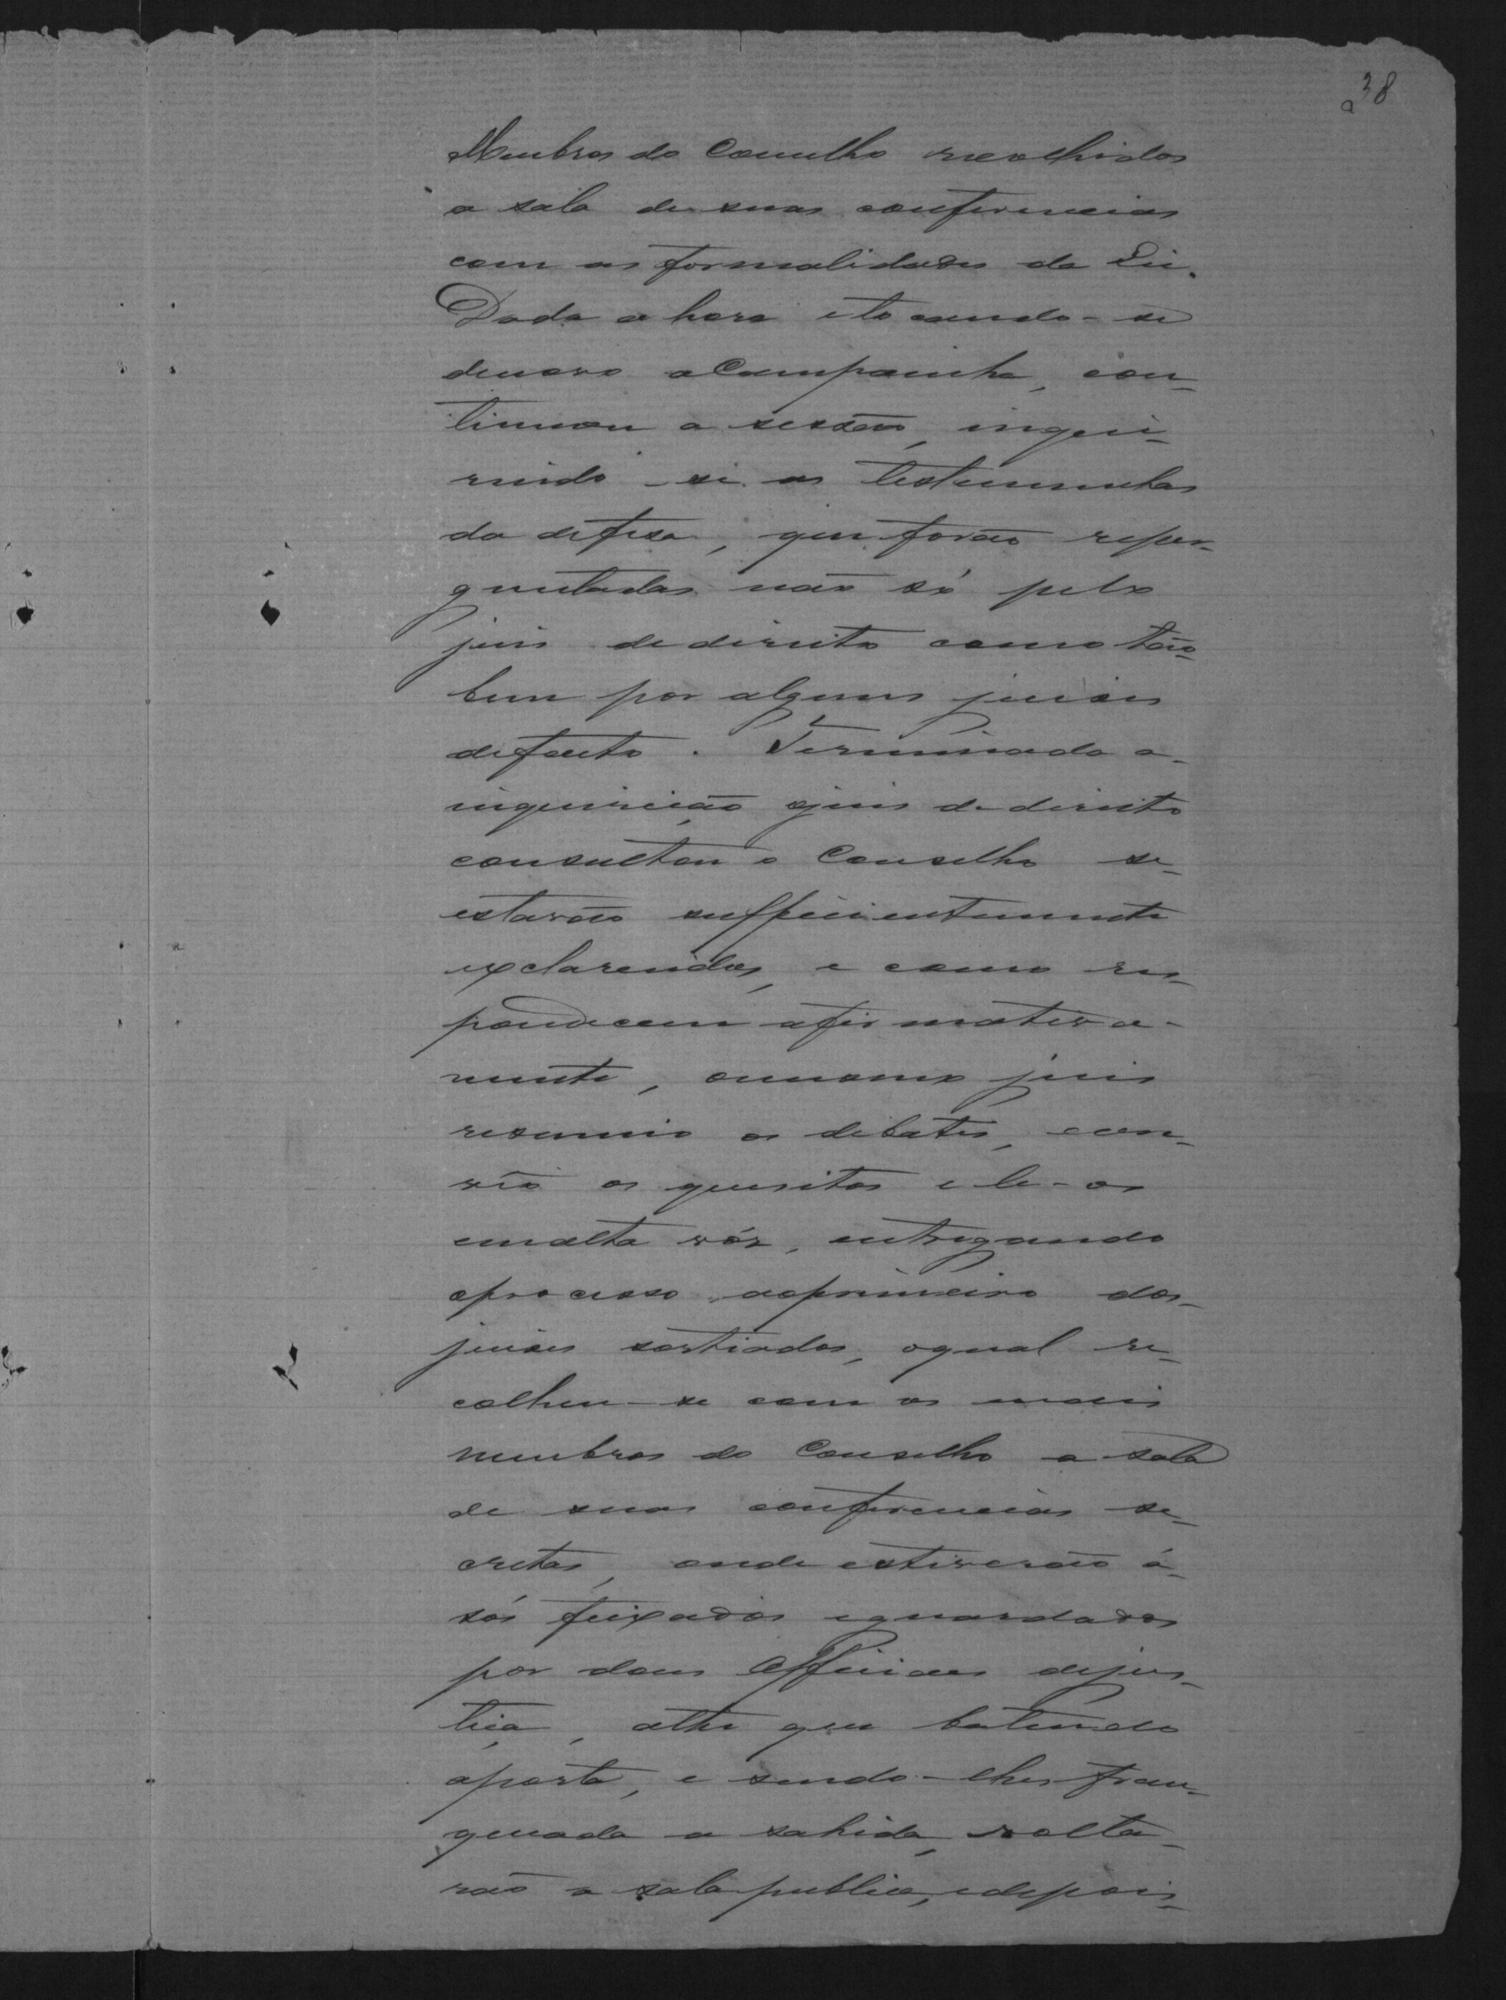 38
Membros do Conselho recolhidos
a sala de suas conferencias
com as formalidades da Lei.
Dada a hora e tocando-se
denovo a Campainha, con-
tinuou a sessão, inque-
rindo-se as testemunhas
da defesa, que forão reper-
guntadas não só pelo
juis de direito como tão
bem por alguns juises
defacto. Terminada a
inquirição ojuis de direito
consultou o Conselho se
estavão sufficientemente
exclarecidos, e como res-
ponderem afirmativa-
mente, omesmo juis
resumio os debates, 
os quesitos e le-os
emalta vós, entregando
oprocesso aoprimeiro dos
juises sortiados, oqual re-
colheu-se com os mais
membros do Conselho a sala
de suas conferencias se-
cretas, onde estiverão á
sós feixados eguardados
por dous Officiaes dejus-
tiça, athe que batendo
aporta, e sendo-lhes fran-
queada a sahida, volta-
rão a sala publica, edepois